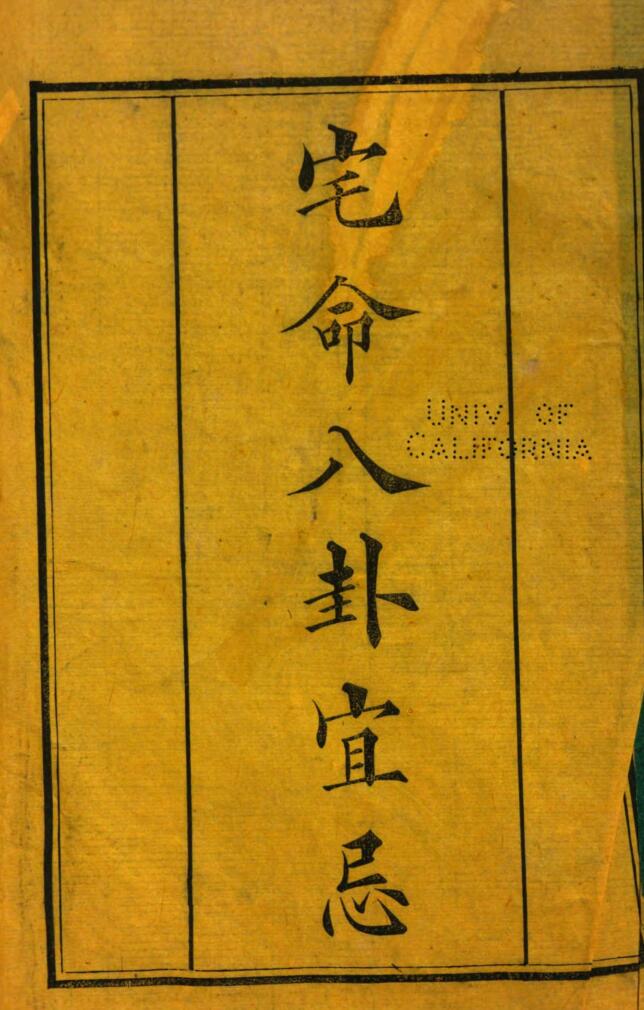 宅命八卦宜忌
UNIV. OF
CALIFORNIA